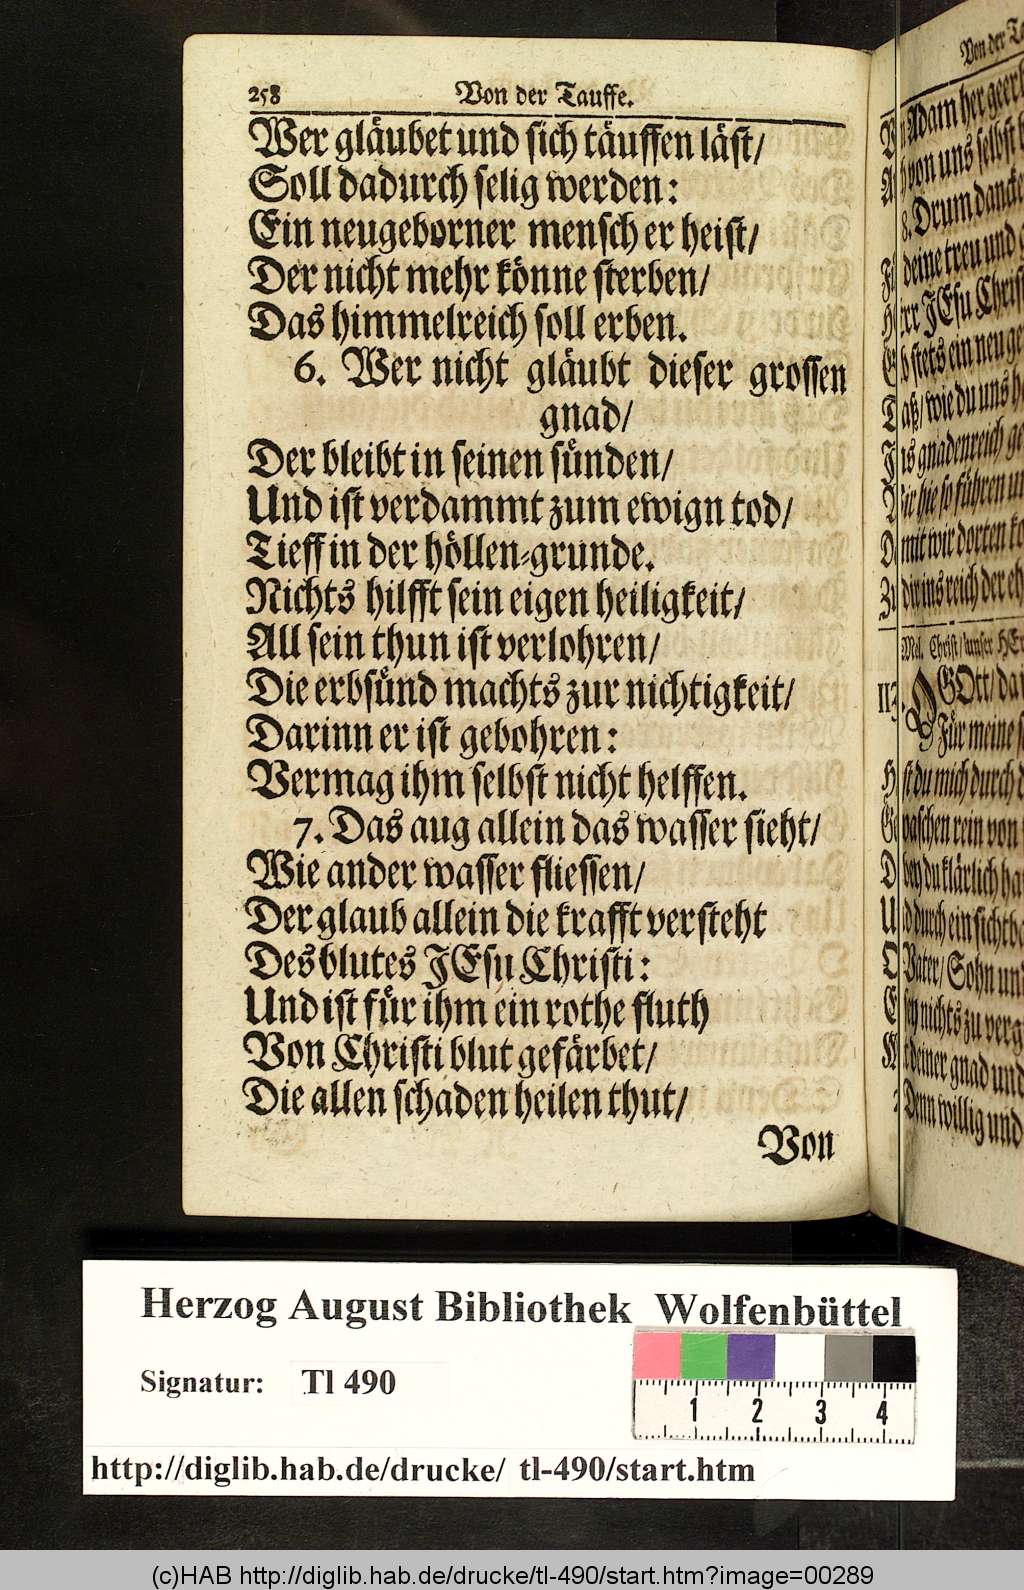 258 Von der Tauffe.
Wer gläubet und sich täuffen läst/
Soll dadurch selig werden:
Ein neugeborner mensch er heist/
Der nicht mehr könne sterben/
Das himmelreich soll erben.
6. Wer nicht gläubt dieser grossen
gnad/
Der bleibt in seinen sünden/
Und ist verdammt zum ewign tod/
Tieff in der höllen-grunde.
Nichts hilfft sein eigen heiligkeit/
All sein thun ist verlohren/
Die erbsünd machts zur nichtigkeit/
Darinn er ist gebohren:
Vermag ihm selbst nicht helffen.
7. Das aug allein das wasser sieht/
Wie ander wasser fliessen/
Der glaub allein die krafft versteht
Des blutes JEsu Christi:
Und ist für ihm ein rothe fluth
Von Christi blut gefärbet/
Die allen schaden heilen thut/
Von
Von der
Adam her
von uns selbst
8. Drum
deine treu und
JEsu
stets ein neu
wie du uns
gnadenreich
hie so führen
mit wir dorten
dir ins reich der
Mel. Christ/ unser
113.
GOtt/
Für meine
du mich durch
waschen rein von
du klärlich
durch ein
Vater/ Sohn und
nichts zu
deiner gnad und
Denn willig und
Herzog August Bibliothek Wolfenbüttel
Signatur: Tl 490
1 2 3 4
http://diglib.hab.de/drucke/ tl-490/start.htm
(c)HAB http://diglib.hab.de/drucke/tl-490/start.htm?image=00289